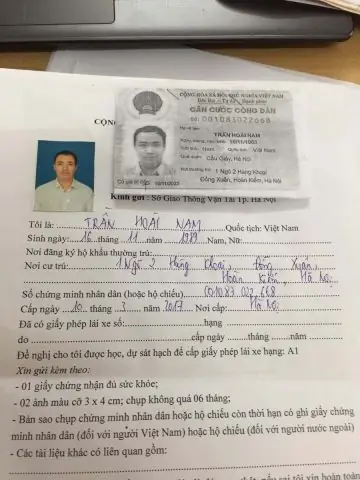 CỘNG HÒA XÃ HỘI CHỦ NGHĨA VIỆT NAM
Độc lập - Tự do - Hạnh phúc
CĂN CƯỚC CÔNG DÂN
Số: 001083022668
Họ và tên:
TRẦN HOÀI NAM
Ngày, tháng, năm sinh: 16/11/1983
Giới tính: Nam Quốc tịch: Việt Nam
Quê quán: Cầu Giấy, Hà Nội
Nơi thường trú: 1 Ngõ 2 Hàng Khoai
Đồng Xuân, Hoàn Kiếm, Hà Nội
Có giá trị đến:
CỘN
Kính gửi : Sở Giao Thông Vận Tải Tp. Hà Nội
Tôi là: TRẦN HOÀI NAM Quốc tịch: Việt Nam
Sinh ngày: 16 tháng 11 năm Nam, Nữ:
Nơi đăng ký hộ khẩu thường trú:
Nơi cư trú: 1 Ngõ 2 Hàng Khoai, Đồng Xuân,
Hoàn Kiếm, Hà Nội
Số chứng minh nhân dân (hoặc hộ chiếu) 001083.022.668
Cấp ngày 10 tháng 3 năm 2017 Nơi cấp: Hà Nội
Đã có giấy phép lái xe số: hạng
do cấp ngày tháng năm
Đề nghị cho tôi được học, dự sát hạch để cấp giấy phép lái xe hạng: A1
Xin gửi kèm theo:
- 01 giấy chứng nhận đủ sức khỏe;
- 02 ảnh màu cỡ 3 x 4 cm; chụp không quá 06 tháng;
- Bản sao chụp chứng minh nhân dân hoặc hộ chiếu còn thời hạn có ghi giấy chứng
minh nhân dân (đối với người Việt Nam) hoặc hộ chiếu (đối với người nước ngoài)
- Các tài liệu khác có liên quan gồm:
sai tôi xin hoàn toàn